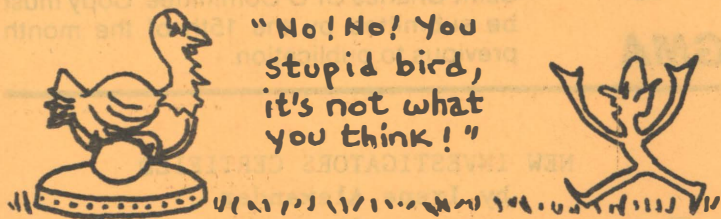 "No! No! You
stupid bird,
it's not what
you think!"